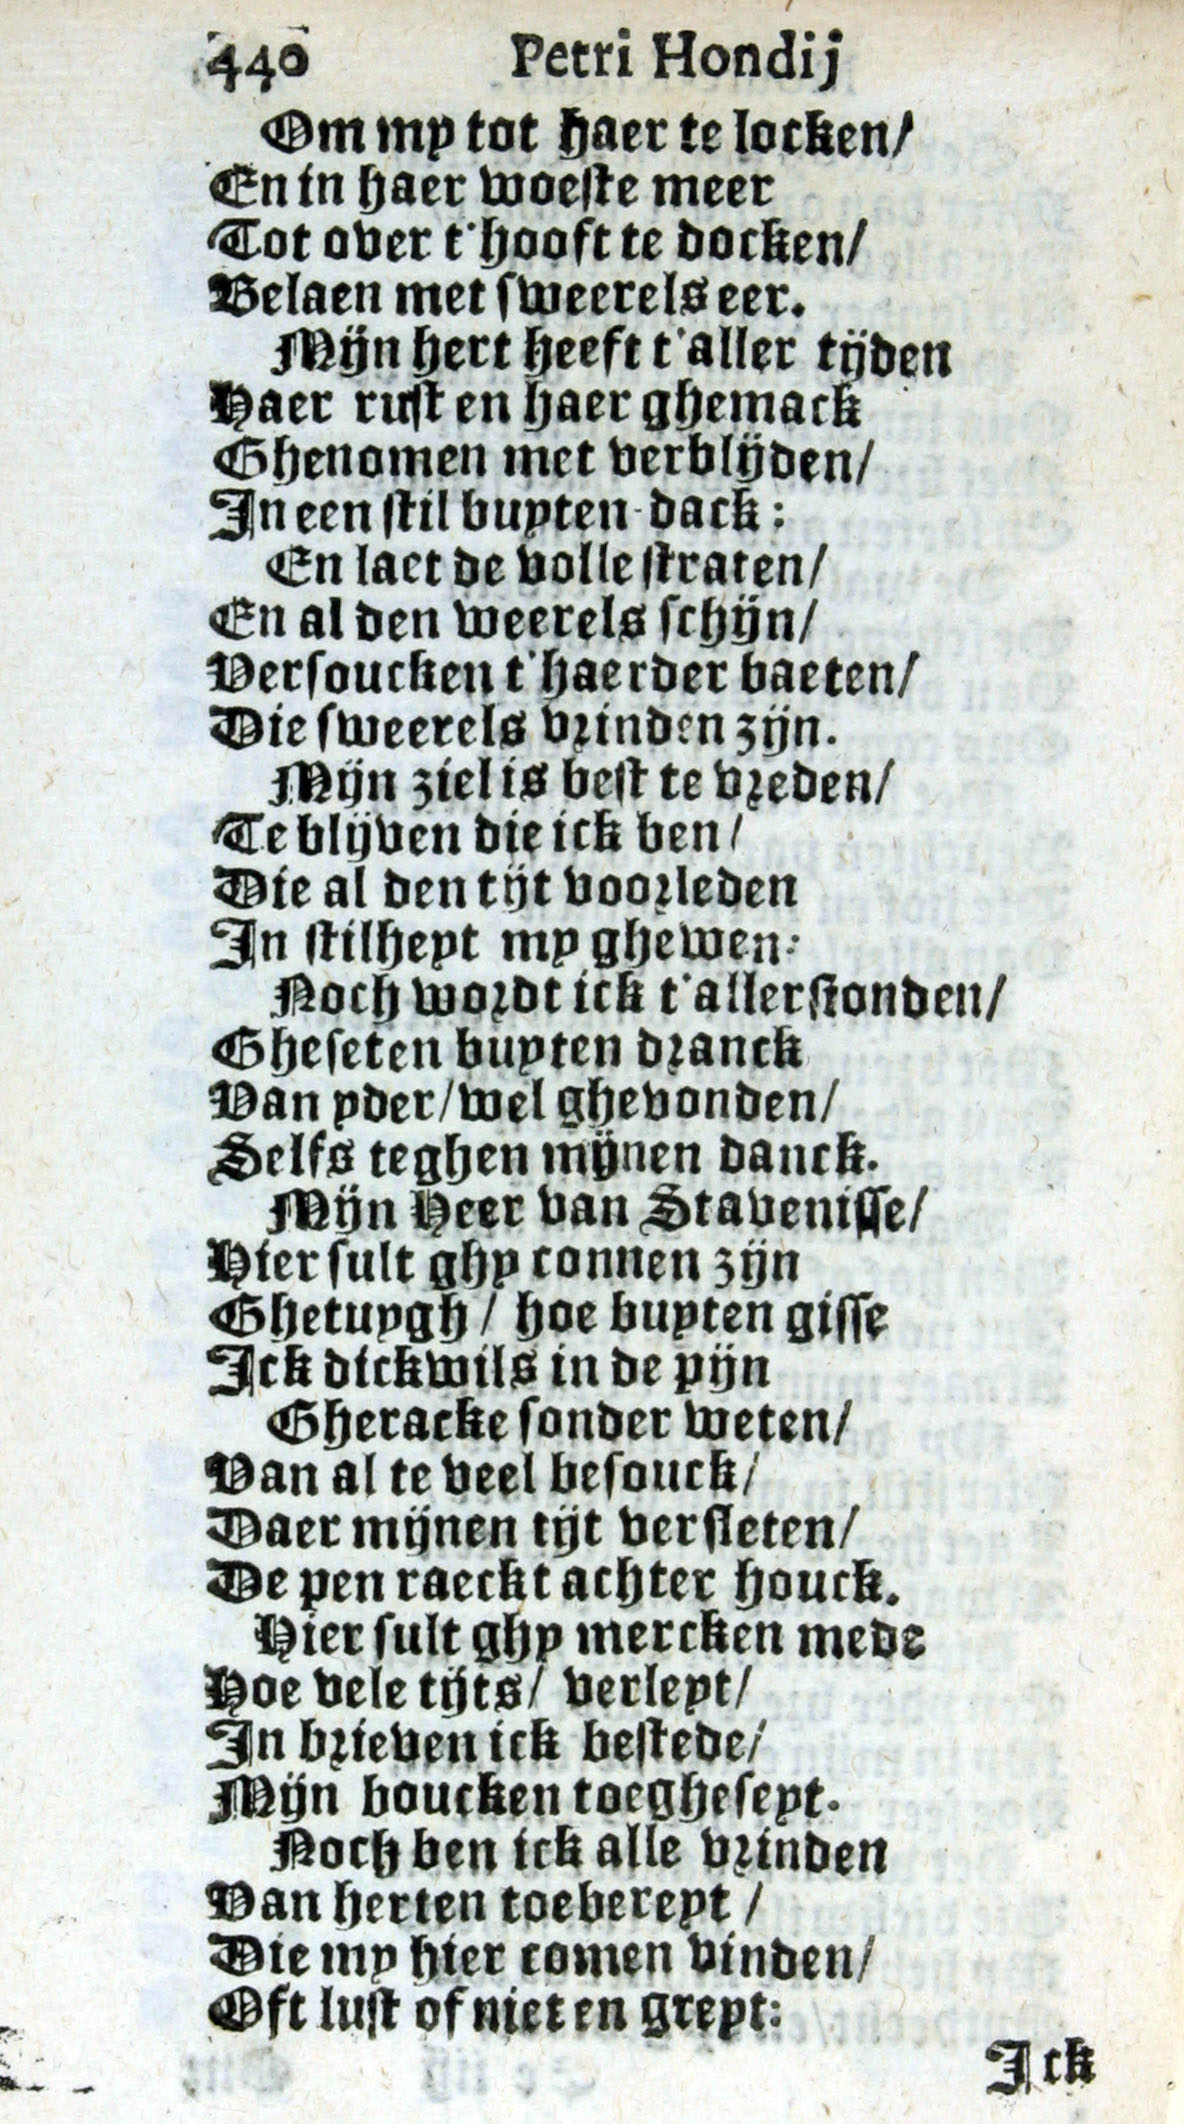 440 Petri Hondij
Om my tot haer te locken/
En in haer woeste meer
Tot over t'hooft te docken/
Belaen met sweerels eer.
Mijn hert heeft t'aller tijden
Haer rust en haer ghemack
Ghenomen met verblijden/
In een stil buyten-dack:
En laet de volle straten/
En al den weerels schijn/
Versoucken t'haerder baeten/
Die sweerels vrinden zijn.
Mijn ziel is best te vreden/
Te blijven die ick ben/
Die al den tijt voorleden
In stilheyt my ghewen:
Noch wordt ick t'aller stonden/
Gheseten buyten dranck
Van yder/wel ghevonden/
Selfs teghen mijnen danck.
Mijn Heer van Stavenisse/
Hier sult ghy connen zijn
Ghetuygh/ hoe buyten gisse
Ick dickwils in de pijn
Gheracke sonder weten/
Van al te veel besouck/
Daer mijnen tijt versleten/
De pen raeckt achter houck.
Hier sult ghy mercken mede
Hoe vele tijts/ verleyt/
In brieven ick bestede/
Mijn boucken toegheseyt.
Noch ben ick alle vrinden
Van herten toebereyt/
Die my hier comen vinden/
Oft lust of niet en greyt:
Ick